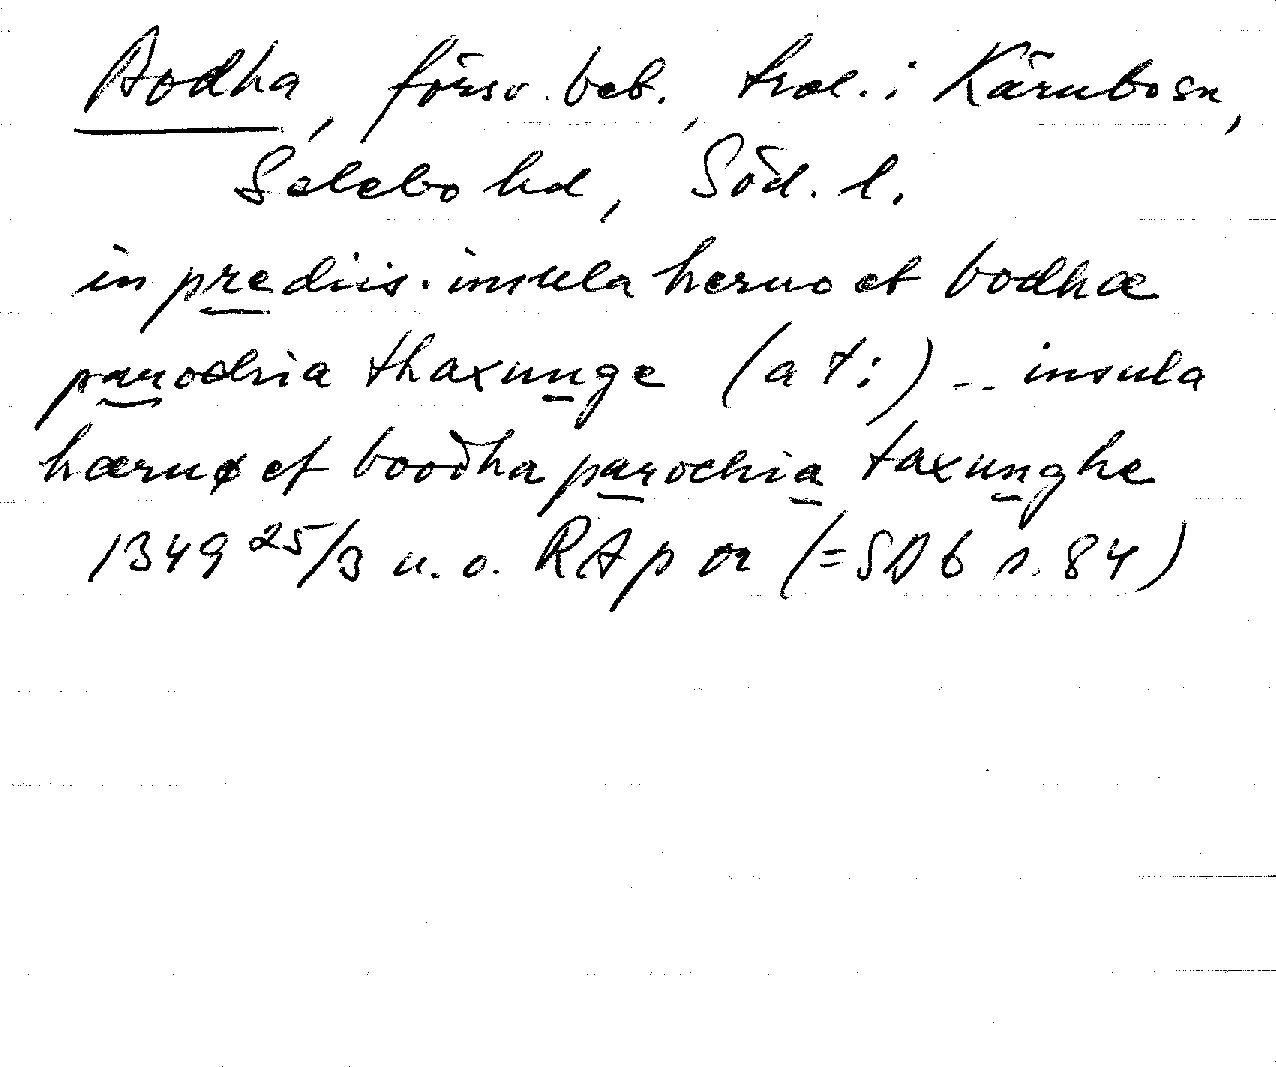 Bodha, försv. beb., trol. i Kärnbo sn,
Selebo hd, Söd. l.
in prediis. insula heruo et bodhæ
parochia thaxunge (at:) -- insula
hærnø et boodha parochia taxunghe
1349 25/3 u. o. RAp or (=SD 6 s. 84)